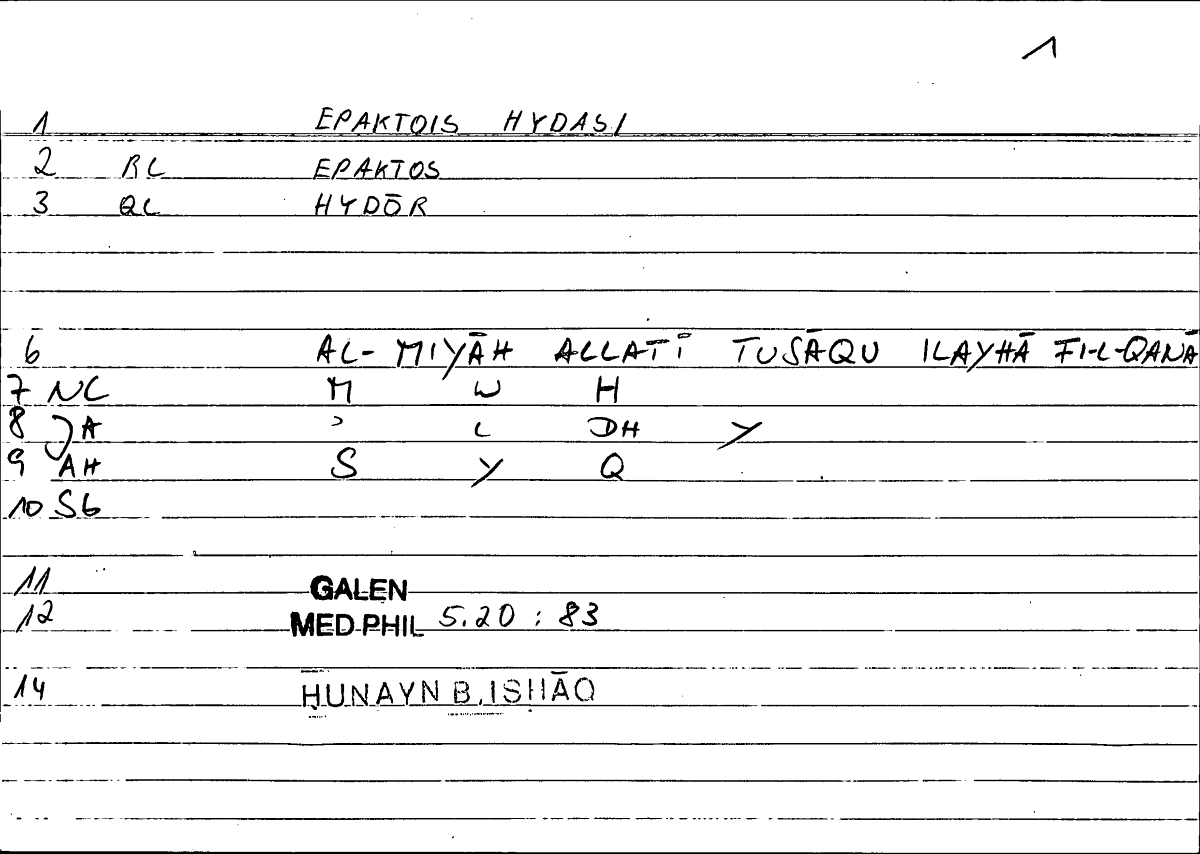 1
1 EPAKTOIS HYDASI
2 RL EPAKTOS
3 QL HYDŌR
6 AL-MIYĀH ALLATĪ TUSĀQU ILAYHĀ FI-L-QANĀ
7 NL M W H
8 JA ʾ L DH Y
9 AH S Y Q
10 Sb
11 GALEN
12 MED PHIL 5.20 : 83
14 ḤUNAYN B. ISḤĀQ